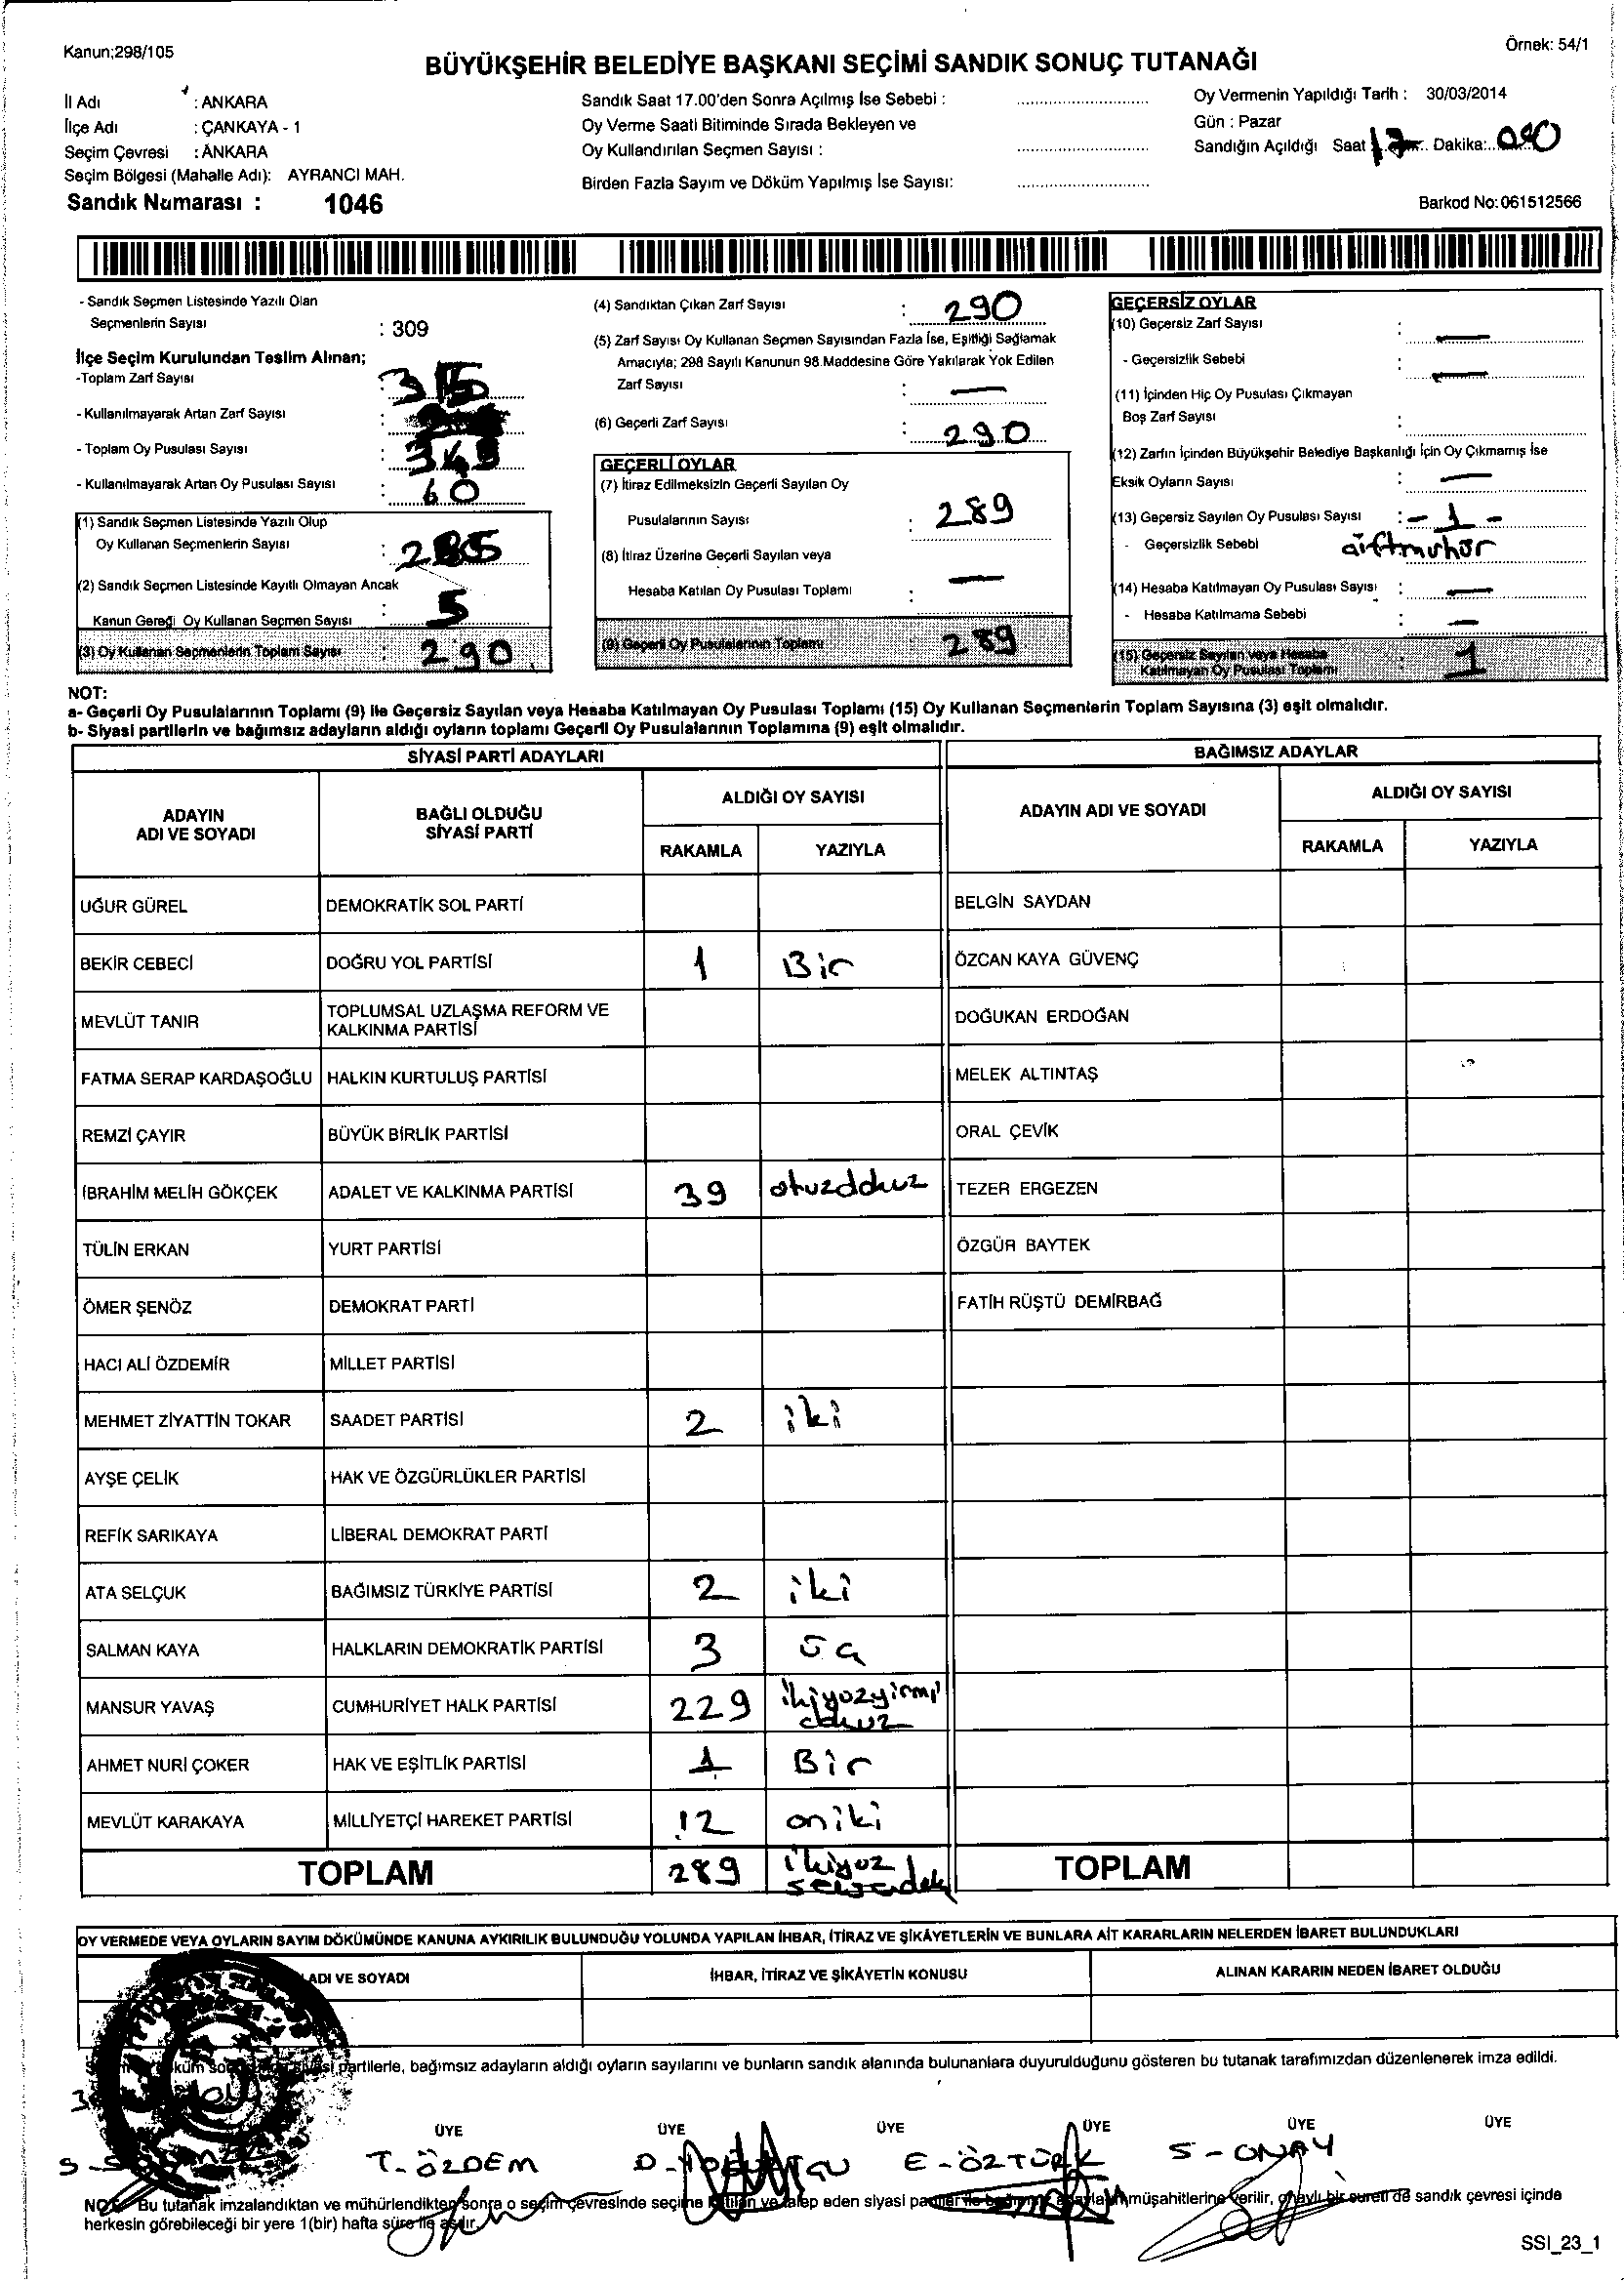 Kanun;298/105
Örnek: 54/1
BÜYÜKŞEHİR BELEDİYE BAŞKANI SEÇİMİ SANDIK SONUÇ TUTANAĞI
İl Adı : ANKARA
İlçe Adı : ÇANKAYA - 1
Seçim Çevresi : ANKARA
Seçim Bölgesi (Mahalle Adı): AYRANCI MAH.
Sandık Numarası : 1046
Sandık Saat 17.00'den Sonra Açılmış İse Sebebi :
Oy Verme Saati Bitiminde Sırada Bekleyen ve
Oy Kullandırılan Seçmen Sayısı :
Birden Fazla Sayım ve Döküm Yapılmış İse Sayısı:
Oy Vermenin Yapıldığı Tarih : 30/03/2014
Gün : Pazar
Sandığın Açıldığı Saat 17 Dakika:
Barkod No:061512566
- Sandık Seçmen Listesinde Yazılı Olan
Seçmenlerin Sayısı : 309
İlçe Seçim Kurulundan Teslim Alınan;
-Toplam Zarf Sayısı : 315
- Kullanılmayarak Artan Zarf Sayısı :
- Toplam Oy Pusulası Sayısı :
- Kullanılmayarak Artan Oy Pusulası Sayısı : 60
(1) Sandık Seçmen Listesinde Yazılı Olup
Oy Kullanan Seçmenlerin Sayısı : 285
(2) Sandık Seçmen Listesinde Kayıtlı Olmayan Ancak
Kanun Gereği Oy Kullanan Seçmen Sayısı : 5
(3) Oy Kullanan Seçmenlerin Toplam Sayısı : 290
(4) Sandıktan Çıkan Zarf Sayısı : 290
(5) Zarf Sayısı Oy Kullanan Seçmen Sayısından Fazla İse, Eşitliği Sağlamak
Amacıyla; 298 Sayılı Kanunun 98.Maddesine Göre Yakılarak Yok Edilen
Zarf Sayısı : —
(6) Geçerli Zarf Sayısı : 290
GEÇERLİ OYLAR
(7) İtiraz Edilmeksizin Geçerli Sayılan Oy
Pusulalarının Sayısı : 289
(8) İtiraz Üzerine Geçerli Sayılan veya
Hesaba Katılan Oy Pusulası Toplamı : —
(9) Geçerli Oy Pusulalarının Toplamı : 289
GEÇERSİZ OYLAR
(10) Geçersiz Zarf Sayısı : —
- Geçersizlik Sebebi : —
(11) İçinden Hiç Oy Pusulası Çıkmayan
Boş Zarf Sayısı :
(12) Zarfın İçinden Büyükşehir Belediye Başkanlığı İçin Oy Çıkmamış İse
Eksik Oyların Sayısı : —
(13) Geçersiz Sayılan Oy Pusulası Sayısı : - 1 -
- Geçersizlik Sebebi çiftmühür
(14) Hesaba Katılmayan Oy Pusulası Sayısı : —
- Hesaba Katılmama Sebebi : —
(15) Geçersiz Sayılan veya Hesaba
Katılmayan Oy Pusulası Toplamı : 1
NOT:
a- Geçerli Oy Pusulalarının Toplamı (9) ile Geçersiz Sayılan veya Hesaba Katılmayan Oy Pusulası Toplamı (15) Oy Kullanan Seçmenlerin Toplam Sayısına (3) eşit olmalıdır.
b- Siyasi partilerin ve bağımsız adayların aldığı oyların toplamı Geçerli Oy Pusulalarının Toplamına (9) eşit olmalıdır.
SİYASİ PARTİ ADAYLARI
ADAYIN ADI VE SOYADI
BAĞLI OLDUĞU SİYASİ PARTİ
ALDIĞI OY SAYISI
RAKAMLA YAZIYLA
UĞUR GÜREL DEMOKRATİK SOL PARTİ
BEKİR CEBECİ DOĞRU YOL PARTİSİ 1 Bir
MEVLÜT TANIR TOPLUMSAL UZLAŞMA REFORM VE
KALKINMA PARTİSİ
FATMA SERAP KARDAŞOĞLU HALKIN KURTULUŞ PARTİSİ
REMZİ ÇAYIR BÜYÜK BİRLİK PARTİSİ
İBRAHİM MELİH GÖKÇEK ADALET VE KALKINMA PARTİSİ 39 otuzdokuz
TÜLİN ERKAN YURT PARTİSİ
ÖMER ŞENÖZ DEMOKRAT PARTİ
HACI ALİ ÖZDEMİR MİLLET PARTİSİ
MEHMET ZİYATTİN TOKAR SAADET PARTİSİ 2 iki
AYŞE ÇELİK HAK VE ÖZGÜRLÜKLER PARTİSİ
REFİK SARIKAYA LİBERAL DEMOKRAT PARTİ
ATA SELÇUK BAĞIMSIZ TÜRKİYE PARTİSİ 2 iki
SALMAN KAYA HALKLARIN DEMOKRATİK PARTİSİ 3 üç
MANSUR YAVAŞ CUMHURİYET HALK PARTİSİ 229 ikiyüzyirmi
dokuz
AHMET NURİ ÇOKER HAK VE EŞİTLİK PARTİSİ 1 Bir
MEVLÜT KARAKAYA MİLLİYETÇİ HAREKET PARTİSİ 12 oniki
TOPLAM 289 ikiyüz
BAĞIMSIZ ADAYLAR
ADAYIN ADI VE SOYADI
ALDIĞI OY SAYISI
RAKAMLA YAZIYLA
BELGİN SAYDAN
ÖZCAN KAYA GÜVENÇ
DOĞUKAN ERDOĞAN
MELEK ALTINTAŞ
ORAL ÇEVİK
TEZER ERGEZEN
ÖZGÜR BAYTEK
FATİH RÜŞTÜ DEMİRBAĞ
TOPLAM
OY VERMEDE VEYA OYLARIN SAYIM DÖKÜMÜNDE KANUNA AYKIRILIK BULUNDUĞU YOLUNDA YAPILAN İHBAR, İTİRAZ VE ŞİKÂYETLERİN VE BUNLARA AİT KARARLARIN NELERDEN İBARET BULUNDUKLARI
ADI VE SOYADI
İHBAR, İTİRAZ VE ŞİKÂYETİN KONUSU
ALINAN KARARIN NEDEN İBARET OLDUĞU
partilerle, bağımsız adayların aldığı oyların sayılarını ve bunların sandık alanında bulunanlara duyurulduğunu gösteren bu tutanak tarafımızdan düzenlenerek imza edildi.
ÜYE ÜYE ÜYE ÜYE ÜYE ÜYE
T. ÖZDEM
E - ÖZTÜRK
S - ONAY
Bu tutanak imzalandıktan ve mühürlendikten sonra o seçim çevresinde seçime katılan ve talep eden siyasi müşahitlerine verilir, onaylı bir sureti de sandık çevresi içinde
herkesin görebileceği bir yere 1(bir) hafta süre ile asılır.
SSI_23_1